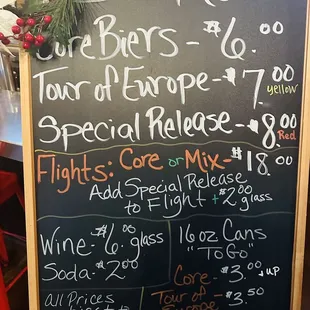 Core Biers - $6.00
Tour of Europe - $7.00
yellow
Special Release - $8.00
Red
Flights: Core or Mix - $18.00
Add Special Release
to Flight + $2.00 glass
Wine - $6.00 glass
Soda - $2.00
all Prices
16 oz Cans
"To Go"
Core - $3.00 & up
Tour of
Europe - $3.50